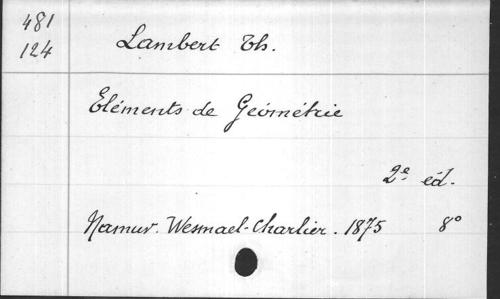 481
124
Lambert Th.
Eléments de Géométrie
2e éd.
Namur. Wesmael-Charlier. 1875 8°